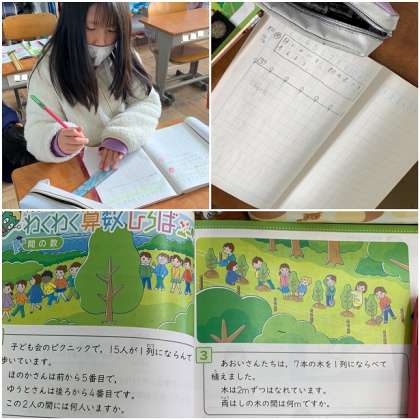 わくわく算数ひろば
間の数
子ども会のピクニックで、15人が1列にならんで
歩いています。
ほのかさんは前から5番目で、
ゆうとさんは後ろから4番目です。
この2人の間には何人いますか。
3
あおいさんたちは、7本の木を1列にならべて
植えました。
木は2mずつはなれています。
両はしの木の間は何mですか。